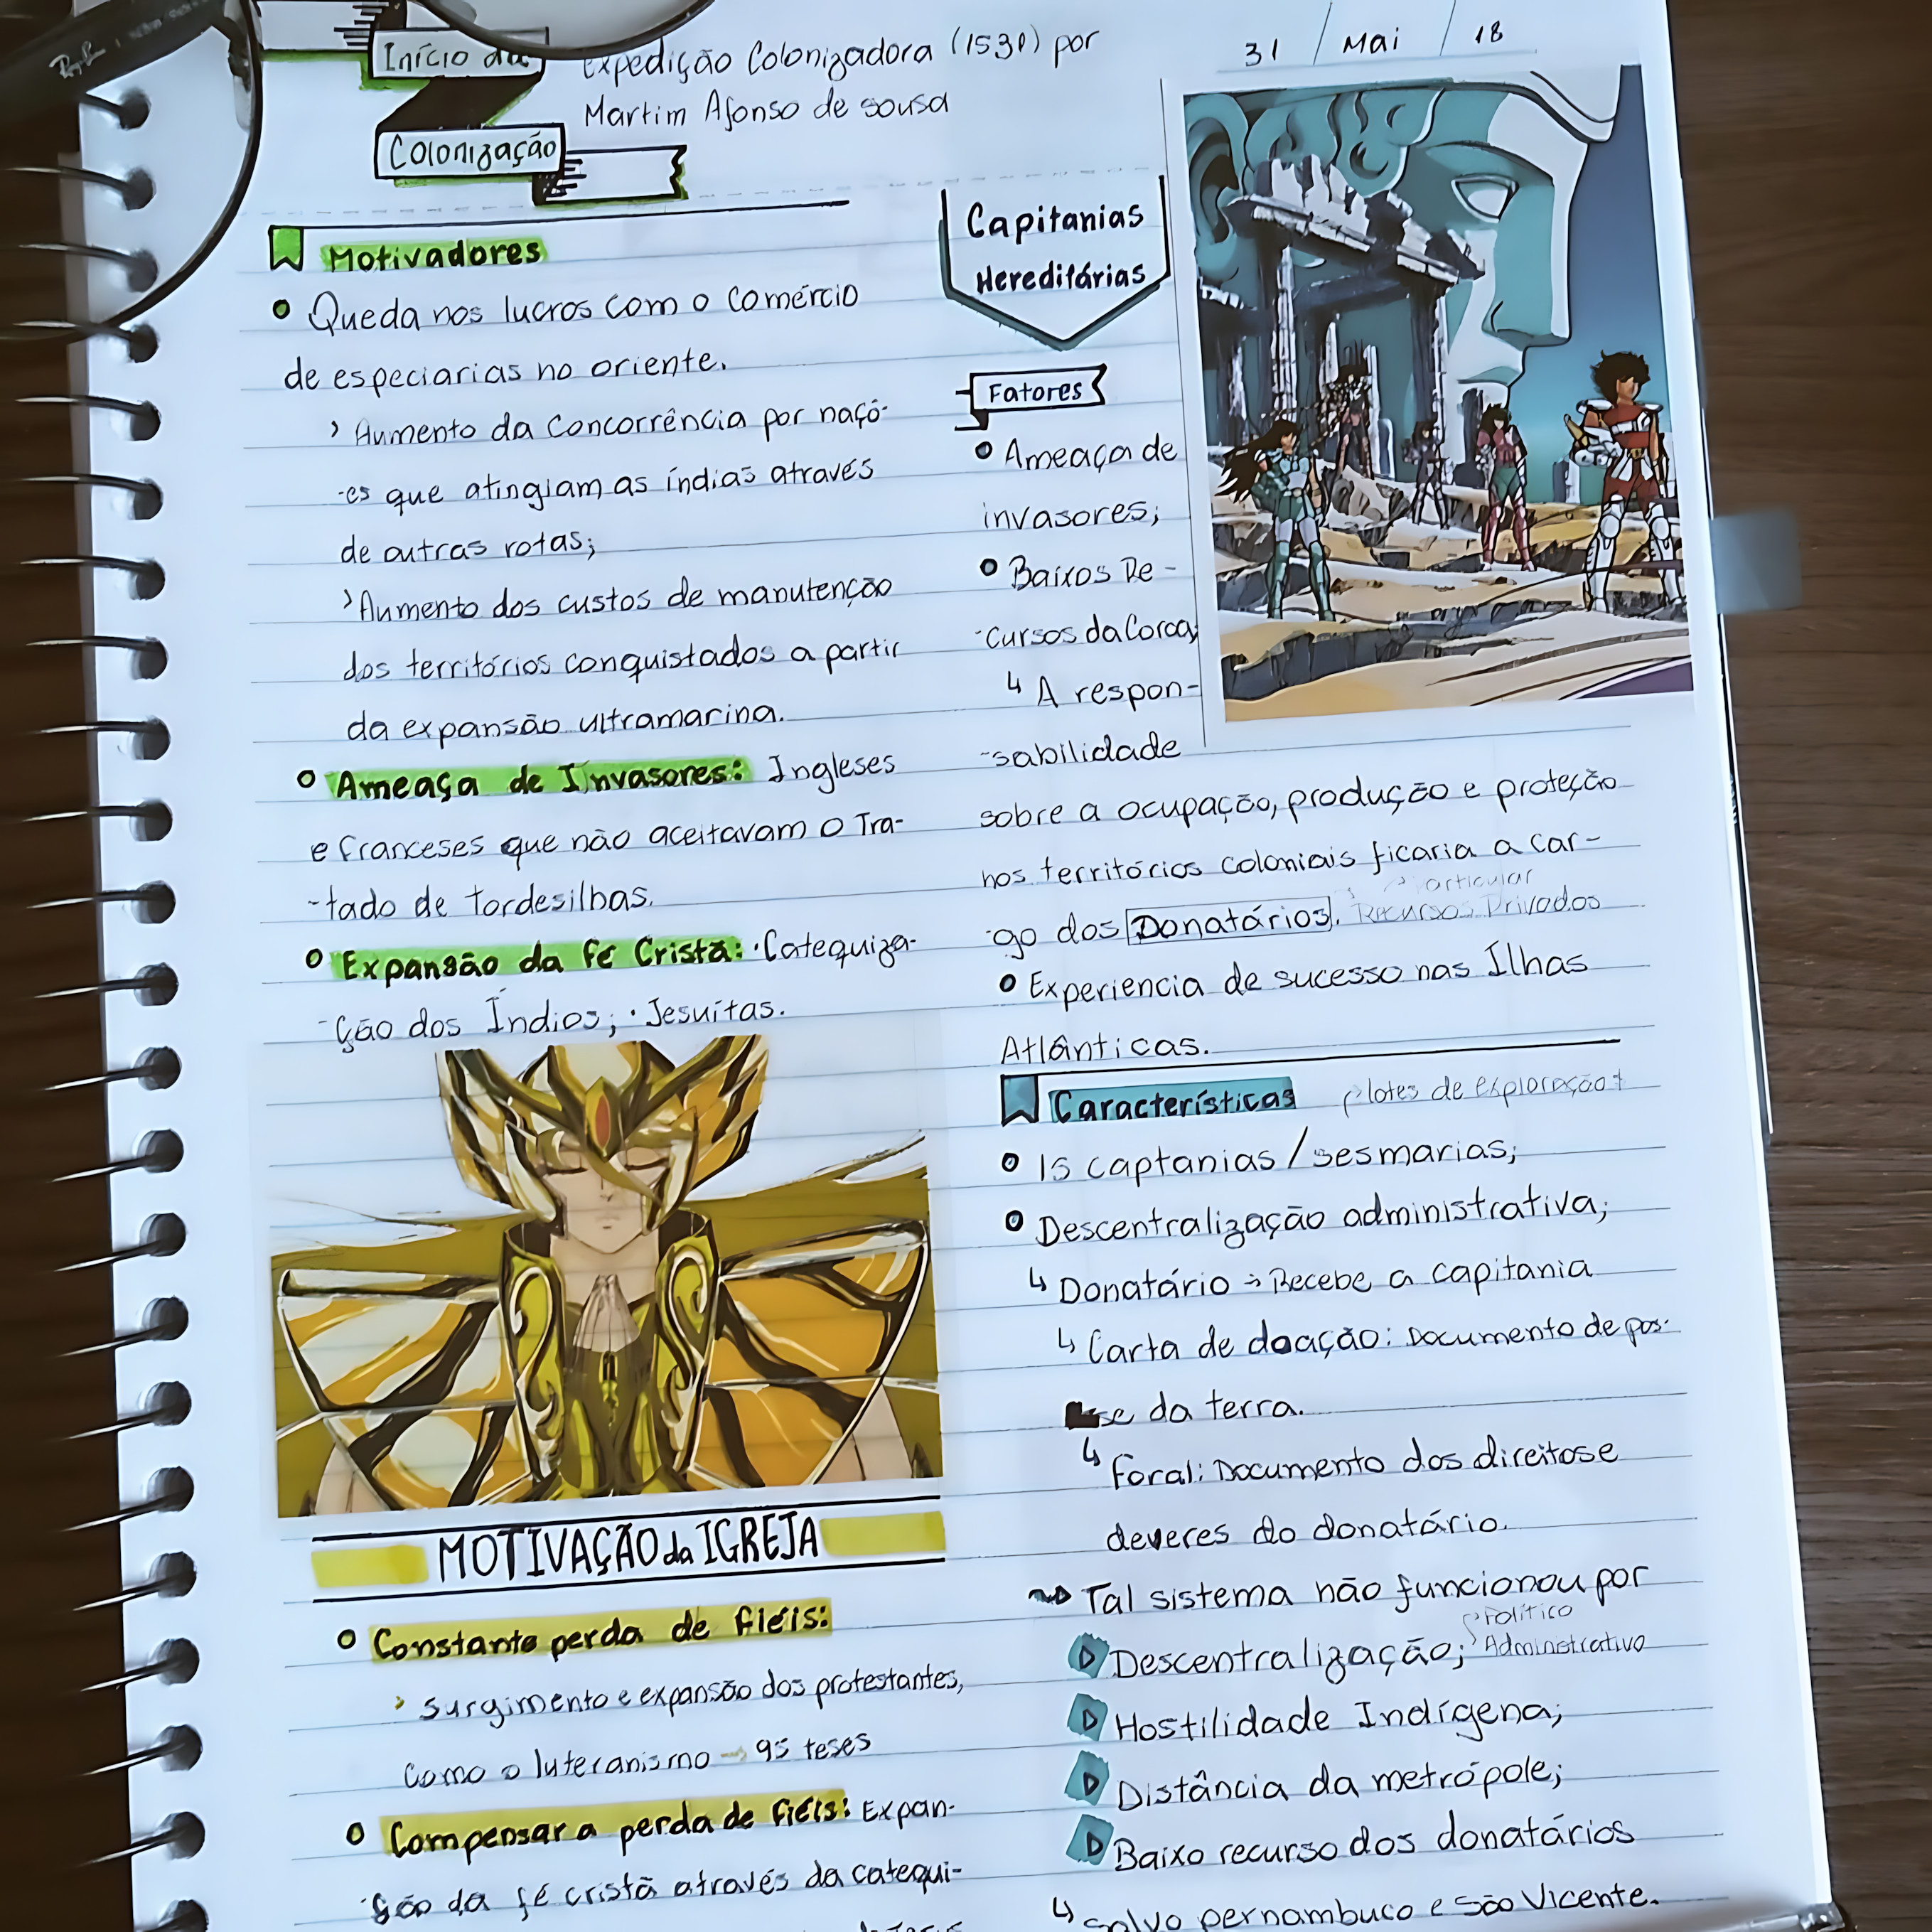 Ray-Ban
Início da
Colonização
Expedição Colonizadora (1530) por
Martim Afonso de sousa
31 / Mai / 18
Motivadores
Queda nos lucros com o comércio
de especiarias no oriente.
› Aumento da concorrência por naçõ-
-es que atingiam as índias através
de outras rotas;
› Aumento dos custos de manutenção
dos territórios conquistados a partir
da expansão ultramarina.
Ameaça de Invasores: Ingleses
e franceses que não aceitavam o Tra-
-tado de tordesilhas.
Expansão da fé Cristã: · Catequiza-
-ção dos Índios; · Jesuítas.
MOTIVAÇÃO da IGREJA
Constante perda de fiéis:
› surgimento e expansão dos protestantes,
como o luteranismo → 95 teses
Compensar a perda de fiéis: Expan-
-são da fé cristã através da catequi-
Capitanias
Hereditárias
Fatores
Ameaça de
invasores;
Baixos Re-
-cursos da Coroa;
↳ A respon-
-sabilidade
sobre a ocupação, produção e proteção
nos territórios coloniais ficaria a car-
Particular
-go dos Donatários. Recursos Privados
Experiencia de sucesso nas Ilhas
Atlânticas.
Características
lotes de exploração
15 captanias / sesmarias;
Descentralização administrativa;
↳ Donatário → Recebe a capitania
↳ Carta de doação: Documento de pos-
-se da terra.
↳ Foral: Documento dos direitos e
deveres do donatário.
Tal sistema não funcionou por
Político
Descentralização; Administrativo
Hostilidade Indígena;
Distância da metrópole;
Baixo recurso dos donatários
↳ Salvo pernambuco e São Vicente.